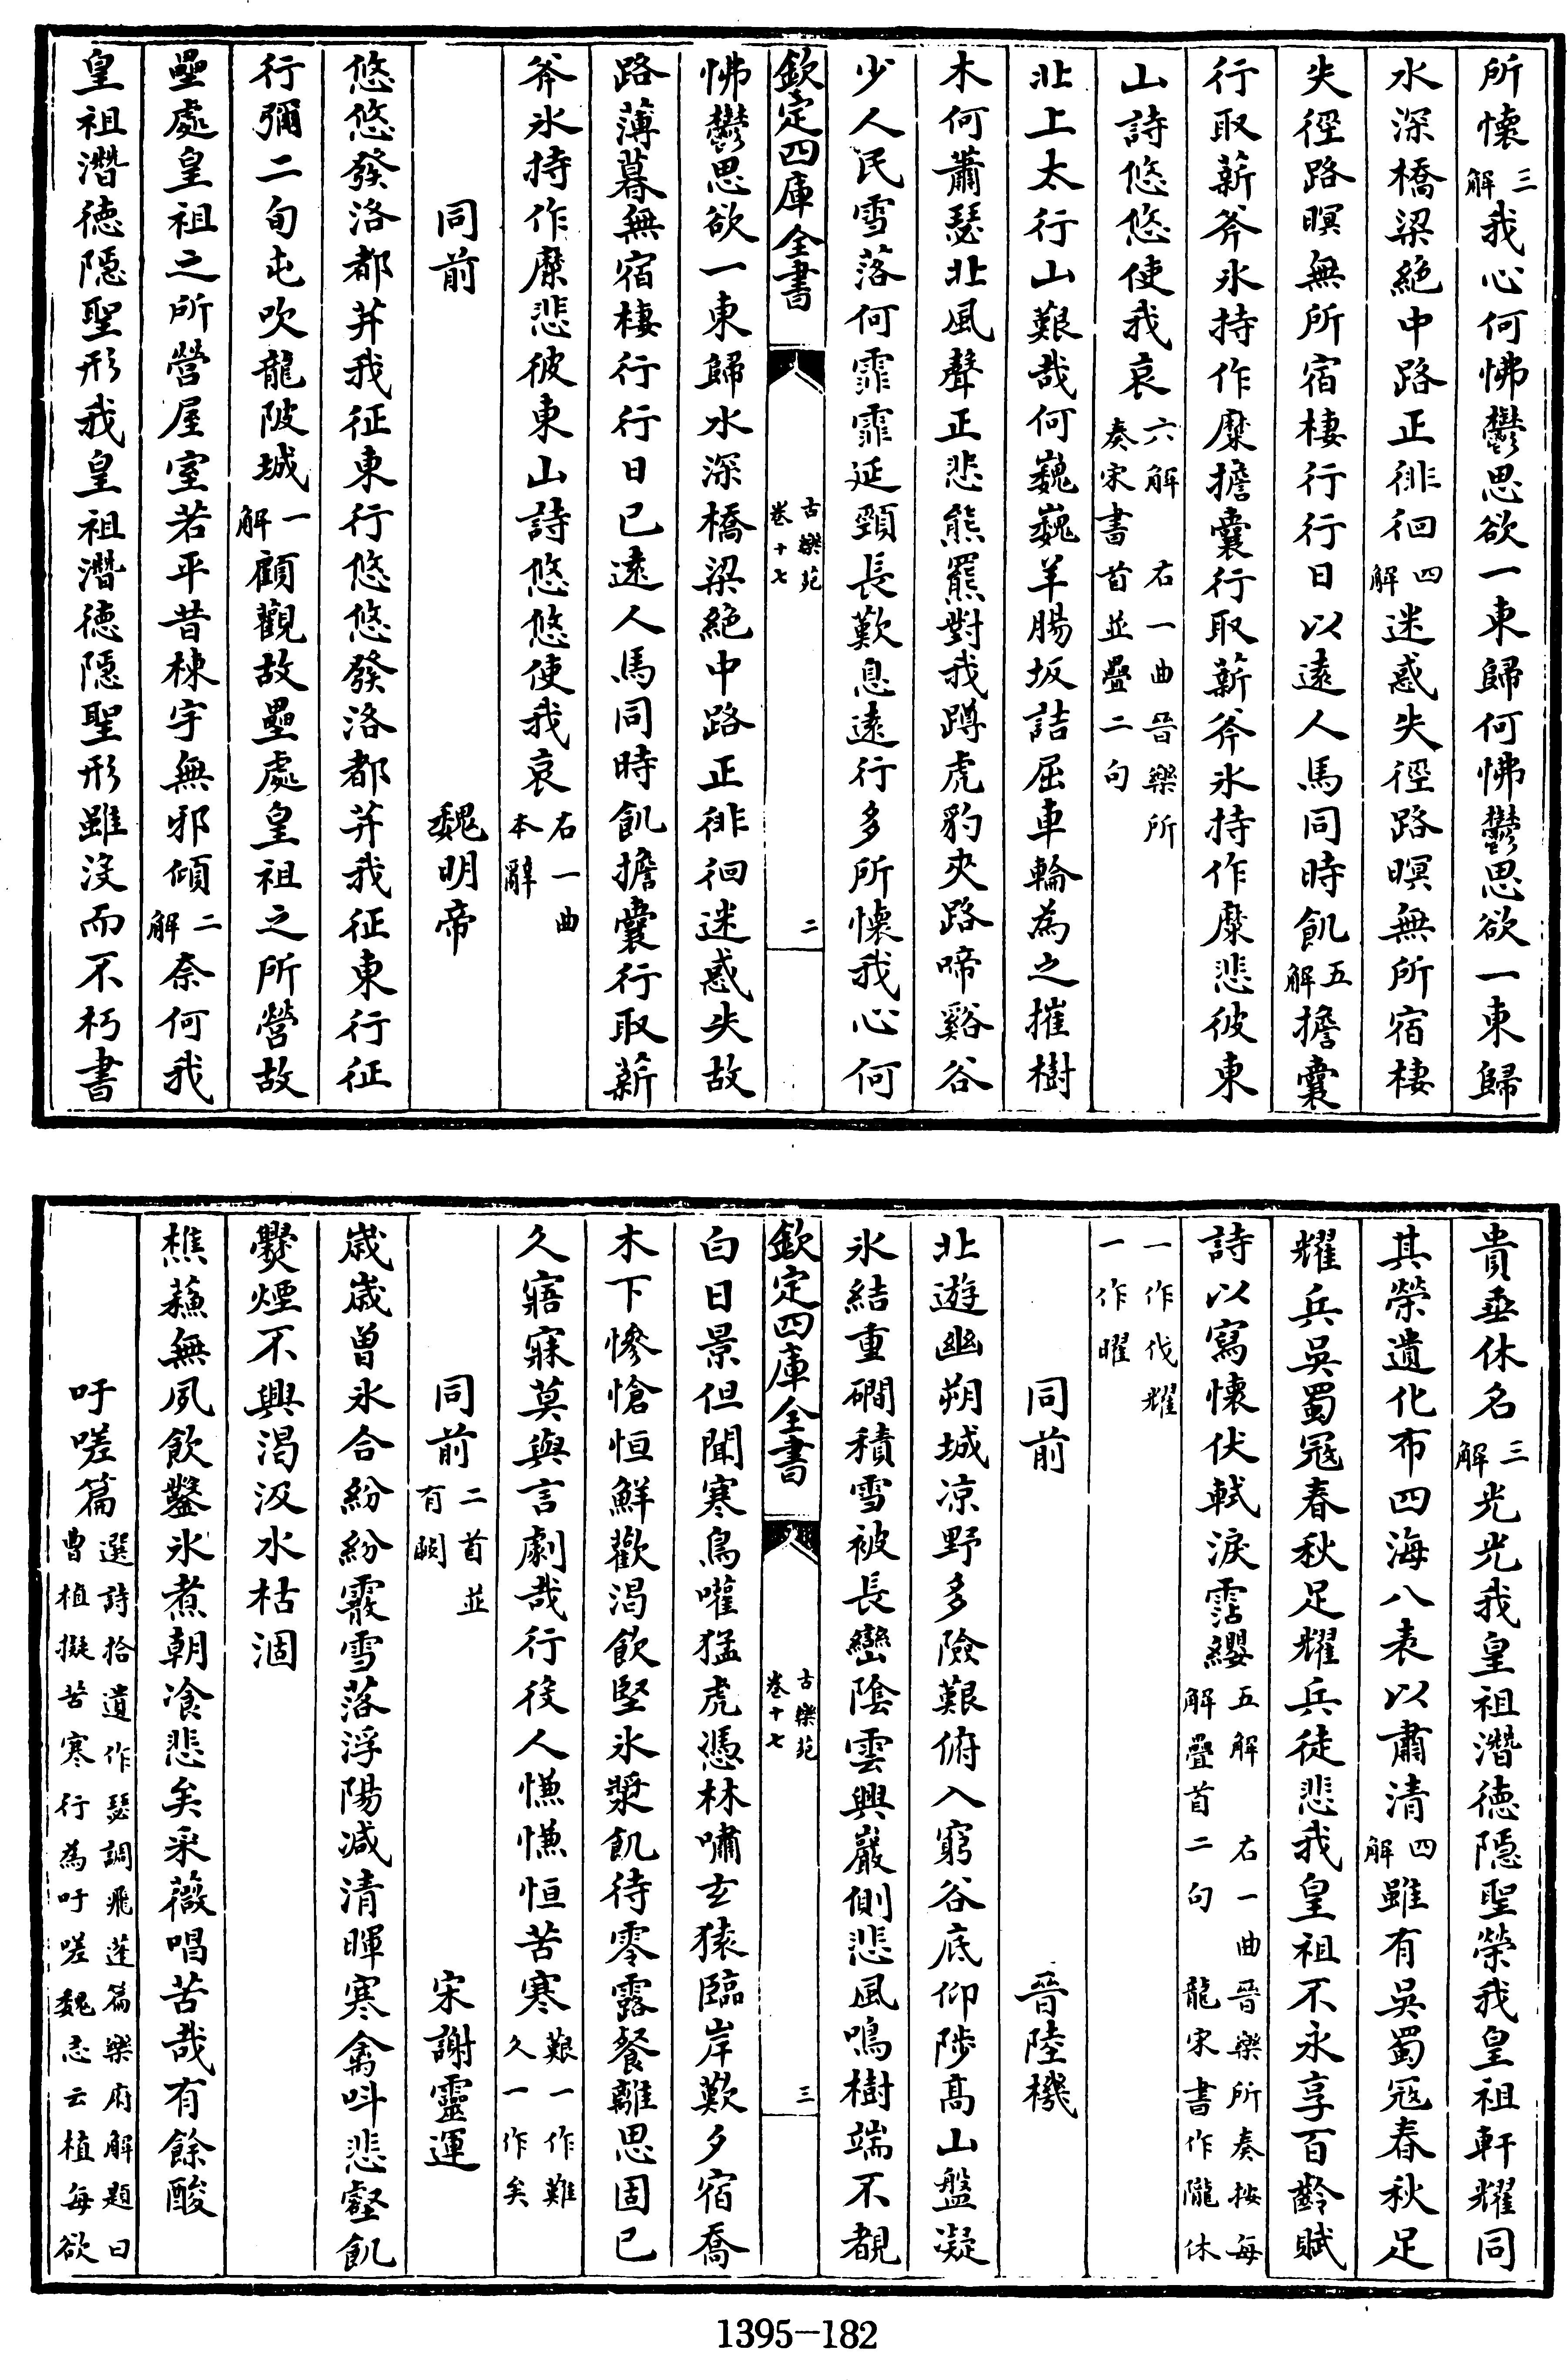 所懷三解我心何怫鬱思欲一東歸何怫鬱思欲一東歸
水深橋梁絶中路正徘徊四解迷惑失徑路暝無所宿棲
失徑路暝無所宿棲行行日以遠人馬同時飢五解擔囊
行取薪斧氷持作糜擔囊行取薪斧氷持作糜悲彼東
山詩悠悠使我哀六解 右一曲晉樂所奏宋書首並疊二句
北上太行山艱哉何巍巍羊腸坂詰屈車輪為之摧樹
木何蕭瑟北風聲正悲熊羆對我蹲虎豹夾路啼谿谷
少人民雪落何霏霏延頸長歎息遠行多所懷我心何
欽定四庫全書 古樂苑卷十七 二
怫鬱思欲一東歸水深橋梁絶中路正徘徊迷惑失故
路薄暮無宿棲行行日已遠人馬同時飢擔囊行取薪
斧氷持作糜悲彼東山詩悠悠使我哀右一曲本辭
同前 魏明帝
悠悠發洛都并我征東行悠悠發洛都并我征東行征
行彌二旬屯吹龍陂城一解顧觀故壘處皇祖之所營故
壘處皇祖之所營屋室若平昔棟宇無邪傾二解奈何我
皇祖潛德隱聖形我皇祖潛德隱聖形雖沒而不朽書
貴垂休名三解光光我皇祖潛德隱聖榮我皇祖軒耀同
其榮遺化布四海八表以肅清四解雖有吳蜀冦春秋足
耀兵吳蜀冦春秋足耀兵徒悲我皇祖不永享百齡賦
詩以寫懷伏軾淚霑纓五解 右一曲晉樂所奏按每解疊首二句 龍宋書作隴休
一作伐耀一作曜
同前 晉陸機
北遊幽朔城凉野多險艱俯入窮谷底仰陟高山盤凝
氷結重磵積雪被長巒陰雲興巖側悲風鳴樹端不覩
欽定四庫全書 古樂苑卷十七 三
白日景但聞寒鳥嚾猛虎憑林嘯玄猿臨岸歎夕宿喬
木下慘愴恒鮮歡渴飲堅氷漿飢待零露餐離思固已
久寤寐莫與言劇哉行役人慊慊恒苦寒艱一作難久一作矣
同前二首並有闕 宋謝靈運
歲歲曾氷合紛紛霰雪落浮陽減清暉寒禽叫悲壑飢
爨煙不興渴汲水枯涸
樵蘇無夙飲鑿氷煮朝飡悲矣采薇唱苦哉有餘酸
吁嗟篇選詩拾遺作瑟調飛蓬篇樂府解題曰曹植擬苦寒行為吁嗟魏志云植每欲
1395-182